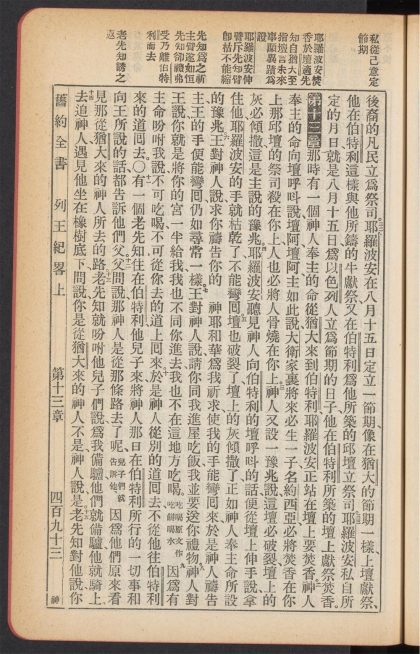 私從己意定
節期
耶羅波安焚
香於壇適先
知自猶大至
指壇言未來
事顯異蹟爲
證
耶羅波安伸
臂斥先知臂
卽枯不能縮
先知爲之祈
主臂遂如恒
先知卻禮弗
受乃離伯特
利而去
老先知誘之
返
後裔的凡民立爲祭司耶羅波安在八月十五日定立一節期像在猶大的節期一樣上壇獻祭、
他在伯特利這樣與他所鑄的牛獻祭又在伯特利爲他所築的邱壇立祭司耶羅波安私自所
定的月日就是八月十五日爲以色列人立爲節期的日子他在伯特利所築的壇上獻祭焚香、
第十三章 那時有一個神人奉主的命從猶大來到伯特利耶羅波安正站在壇上要焚香神人
奉主的命向壇呼呌說壇阿壇阿主如此說大衛家裏將來必生一子名約西亞必將焚香在你
上那邱壇的祭司殺在你上人也必將人骨燒在你上神人又設一豫兆說這壇必破裂壇上的
灰必傾撒這是主說的豫兆耶羅波安聽見神人向伯特利的壇呼呌的話便從壇上伸手說拿
住他耶羅波安的手就枯乾了不能彎囘壇也破裂了壇上的灰傾撒了正如神人奉主命所設
的豫兆王對神人說求你禱告你的　神耶和華爲我祈求使我的手能彎囘來於是神人禱告
主王的手便能彎囘仍如尋常一樣王對神人說請你同我進屋吃飯我並要送你禮物神人對
王說你就是將你的宮一半給我我也不同你進去我也不在這地方吃喝、吃喝原文作吃餠喝水因爲有
主命吩咐我說不可吃喝不可從你去的道上囘來於是神人從別的道囘去不從他往伯特利
來的道囘去〇有一個老先知住在伯特利他兒子來將神人那日在伯特利所行的一切事和
向王所說的話都告訴他們父父問說那神人是從那條路去了呢、兒子們就告訴他、因爲他們原來看
見那從猶大來的神人所去的路老先知就吩咐他兒子們說爲我備驢他們就備驢他就騎上
去追神人遇見他坐在橡樹底下問說你是從猶大來的神人不是神人說是老先知對他說你
舊約全書　列王紀畧上　第十三章　四百九十三　神